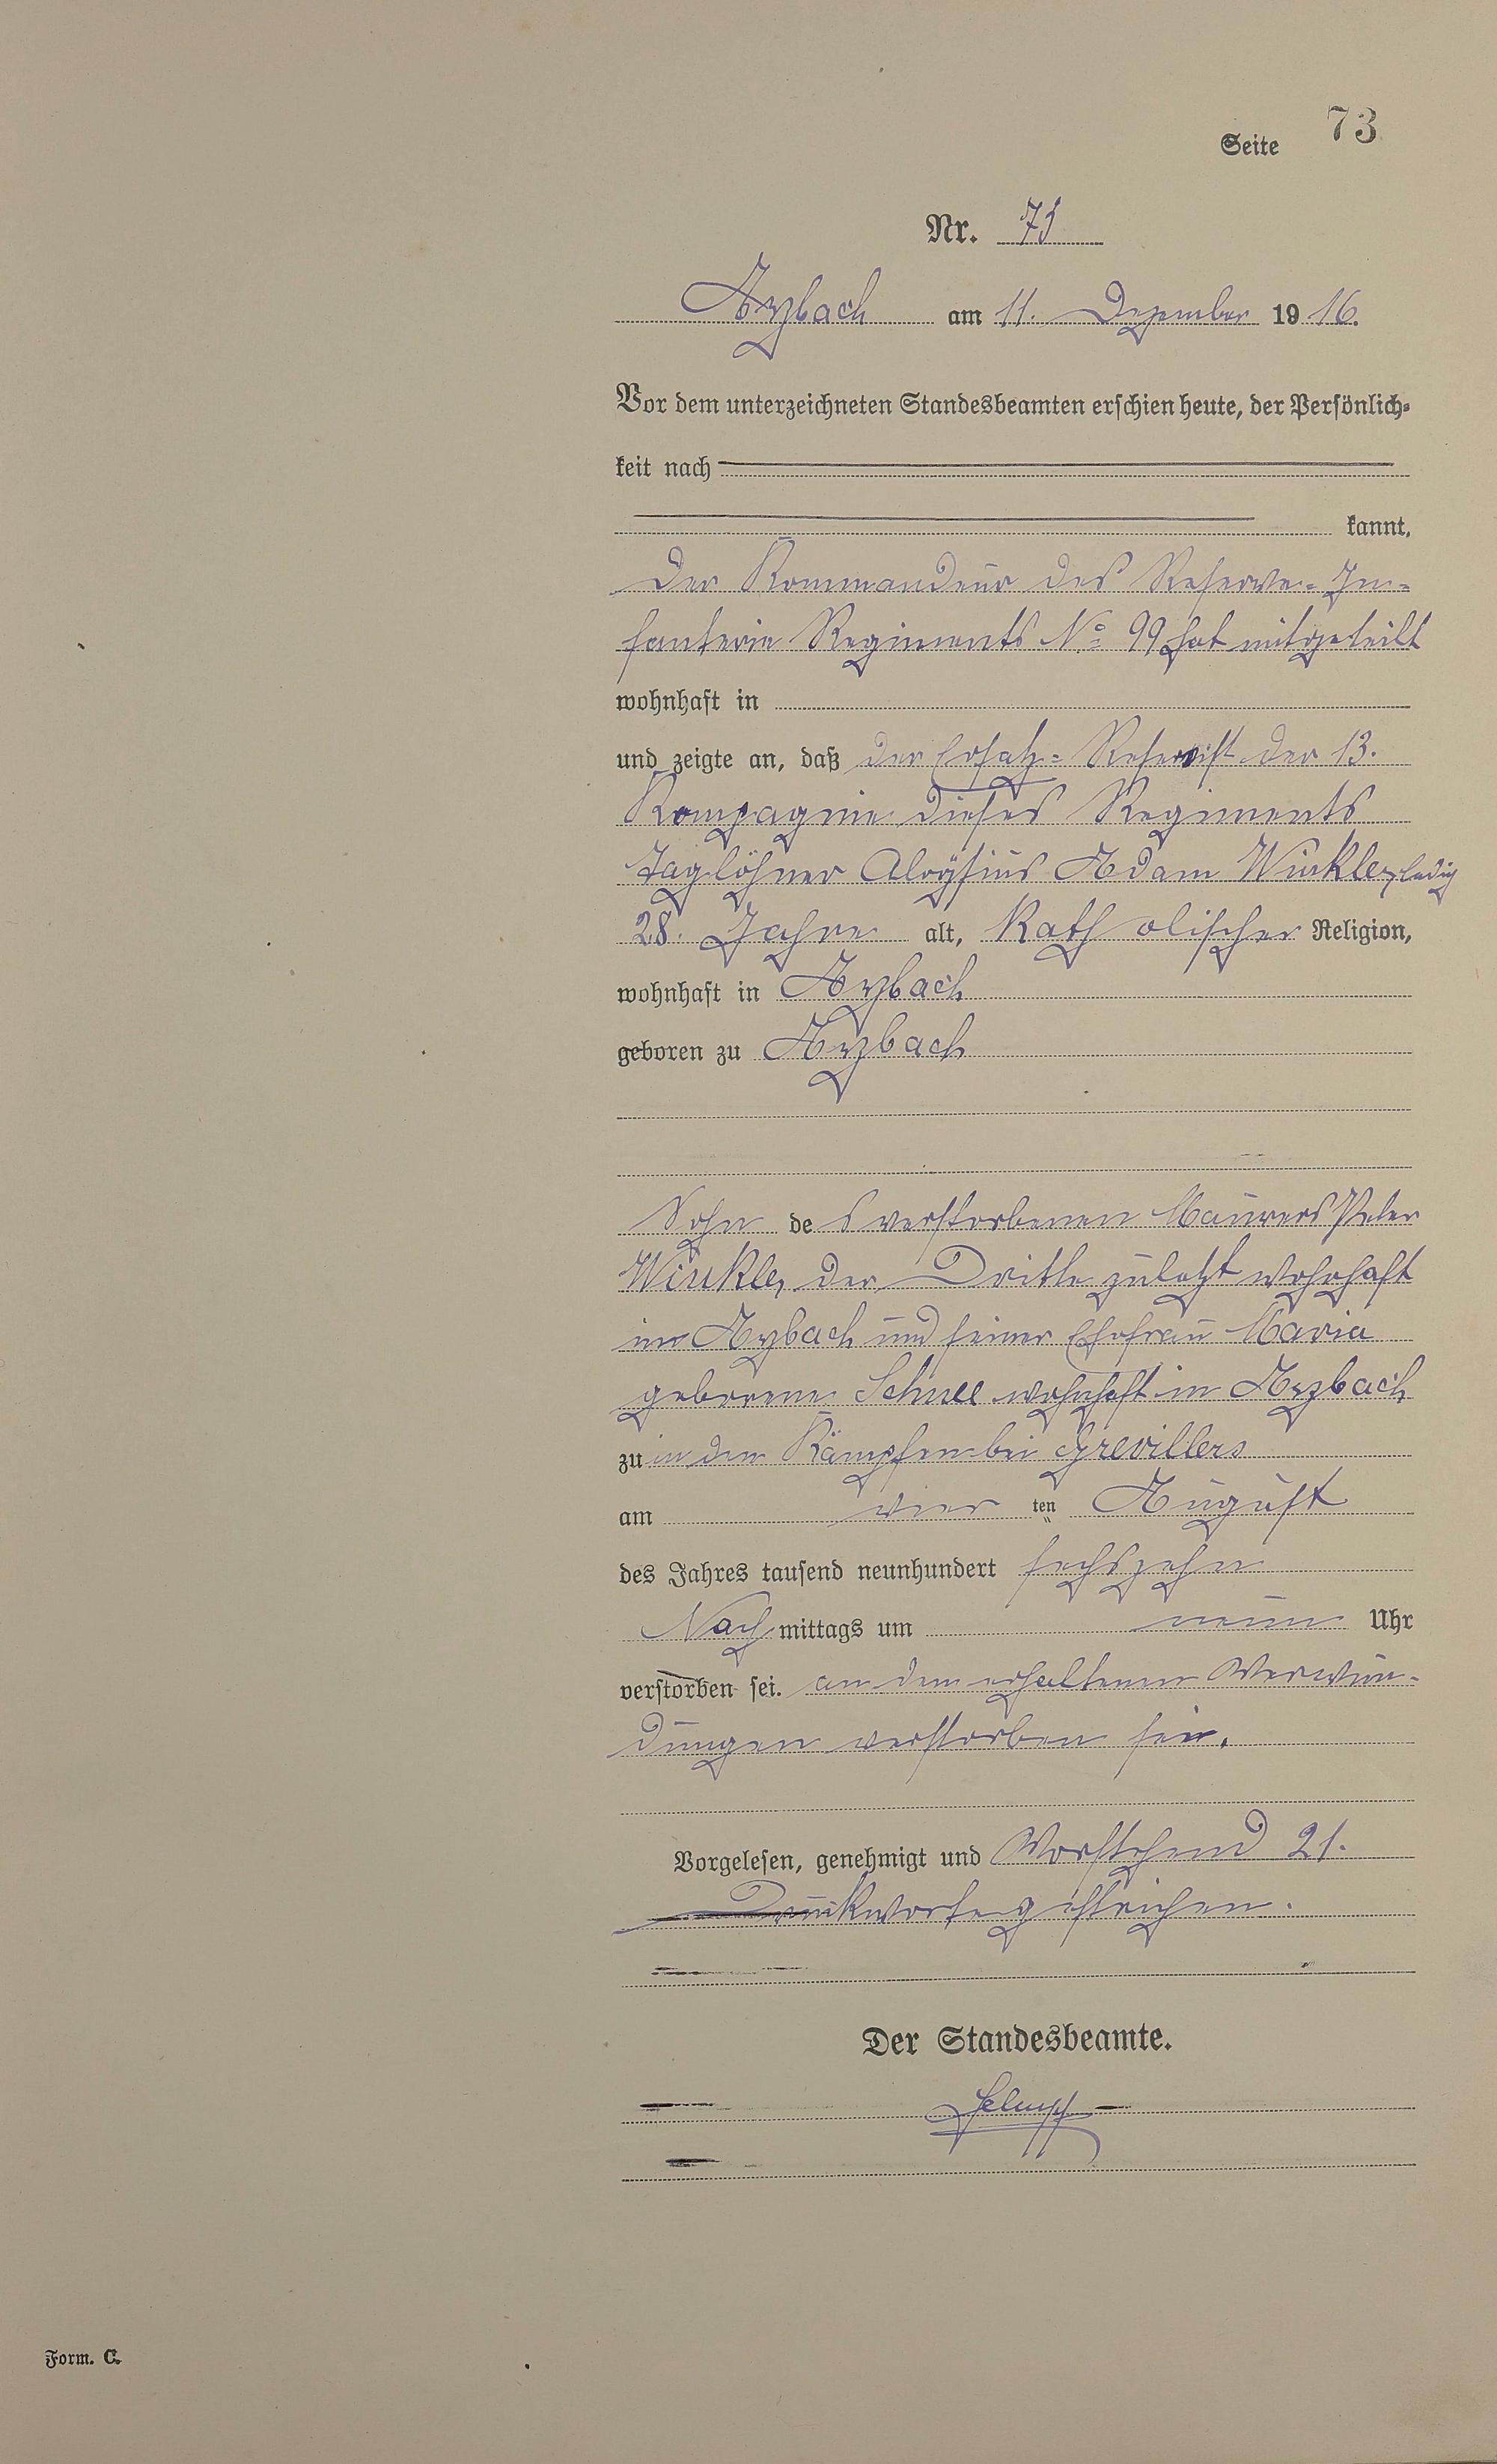 Seite 73
Nr. 73
Arzbach am 11. Dezember 1916.
Vor dem unterzeichneten Standesbeamten erschien heute, der Persönlich-
keit nach
kannt,
Der Kommandeur des Reserve-In-
fanterie Regiments No 99 hat mitgeteilt
wohnhaft in
und zeigte an, daß der Ersatz-Reservist der 13.
Kompagnie dieses Regiments
Taglöhner Aloysius Adam Winkler, ledig
28 Jahre alt, Katholischer Religion,
wohnhaft in Arzbach
geboren zu Arzbach
Sohn des verstorbenen Maurers Peter
Winkler der Dritte zuletzt wohnhaft
in Arzbach und seiner Ehefrau Maria
geborene Schnee wohnhaft in Arzbach
zu in den Kämpfen bei Grevillers
am vier ten August
des Jahres tausend neunhundert sechszehn
Nachmittags um neun Uhr
verstorben sei. an den erhaltenen Verwun-
dungen verstorben sei.
Vorgelesen, genehmigt und Vorstehend 21.
Druckworte gestrichen.
Der Standesbeamte.
Form. C.